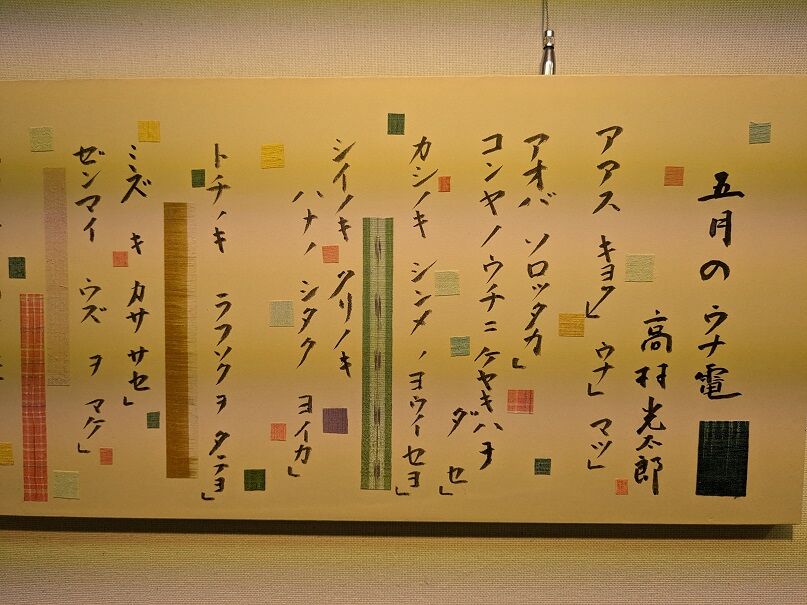 五月の ウナ電
高村光太郎
アアス キヨク」 ウナ」 マツ」
アオバ ソロツタカ」
コンヤノウチニ ケヤキハヲ
ダセ」
カシノキ シンメノヨウイセヨ」
シイノキ クリノキ
ハナノ シタク ヨイカ」
トチノキ ラフソクヲ タテヨ」
ミズキ カササセ」
ゼンマイ ウズヲ マケ」